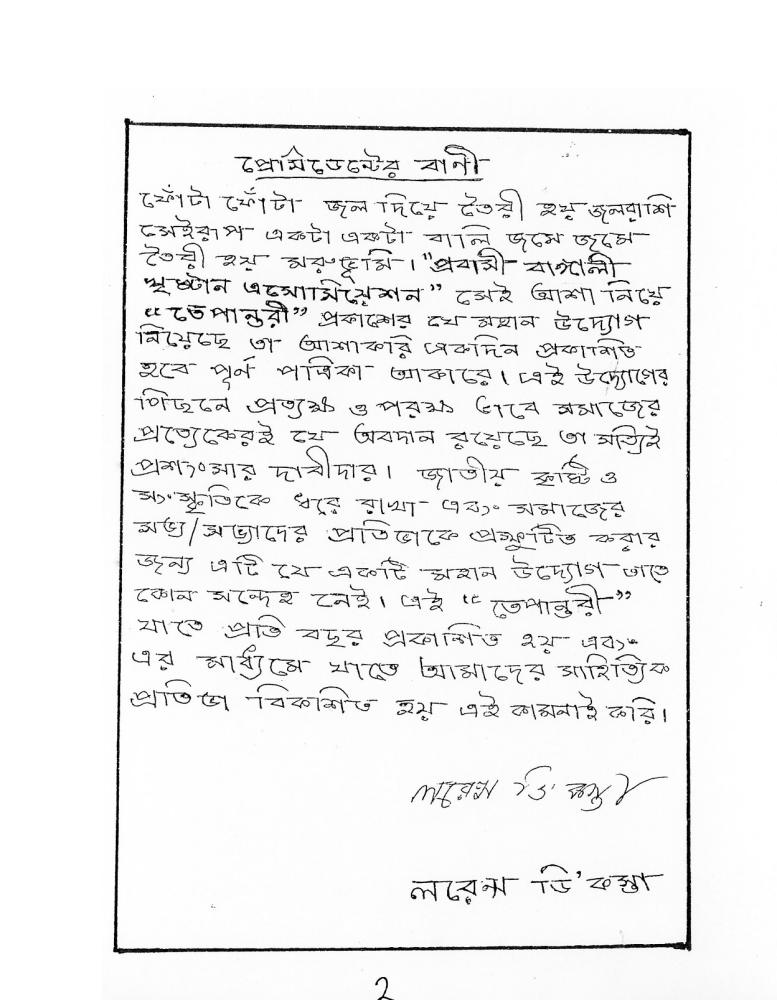 প্রেসিডেন্টের বাণী
ফোঁটা ফোঁটা জল দিয়ে তৈরী হয় জলরাশি
সেইরূপ একটা একটা বালি জমে জমে
তৈরী হয় মরুভূমি। "প্রবাসী বাঙ্গালী
খৃষ্টান এসোসিয়েশন" সেই আশা নিয়ে
"তেপান্তরী" প্রকাশের যে মহান উদ্যোগ
নিয়েছে তা আশাকরি একদিন প্রকাশিত
হবে পূর্ন পত্রিকা আকারে। এই উদ্যোগের
পিছনে প্রত্যক্ষ ও পরক্ষ ভাবে সমাজের
প্রত্যেকেরই যে অবদান রয়েছে তা সত্যিই
প্রশংসার দাবীদার। জাতীয় কৃষ্টি ও
সংস্কৃতিকে ধরে রাখা এবং সমাজের
সভ্য/সভ্যাদের প্রতিভাকে প্রস্ফুটিত করার
জন্য এটি যে একটি মহান উদ্যোগ তাতে
কোন সন্দেহ নেই। এই "তেপান্তরী"
যাতে প্রতি বছর প্রকাশিত হয় এবং
এর মাধ্যমে যাতে আমাদের সাহিত্যিক
প্রতিভা বিকশিত হয় এই কামনাই করি।
লরেন্স ডি' কস্তা
লরেন্স ডি' কস্তা
2